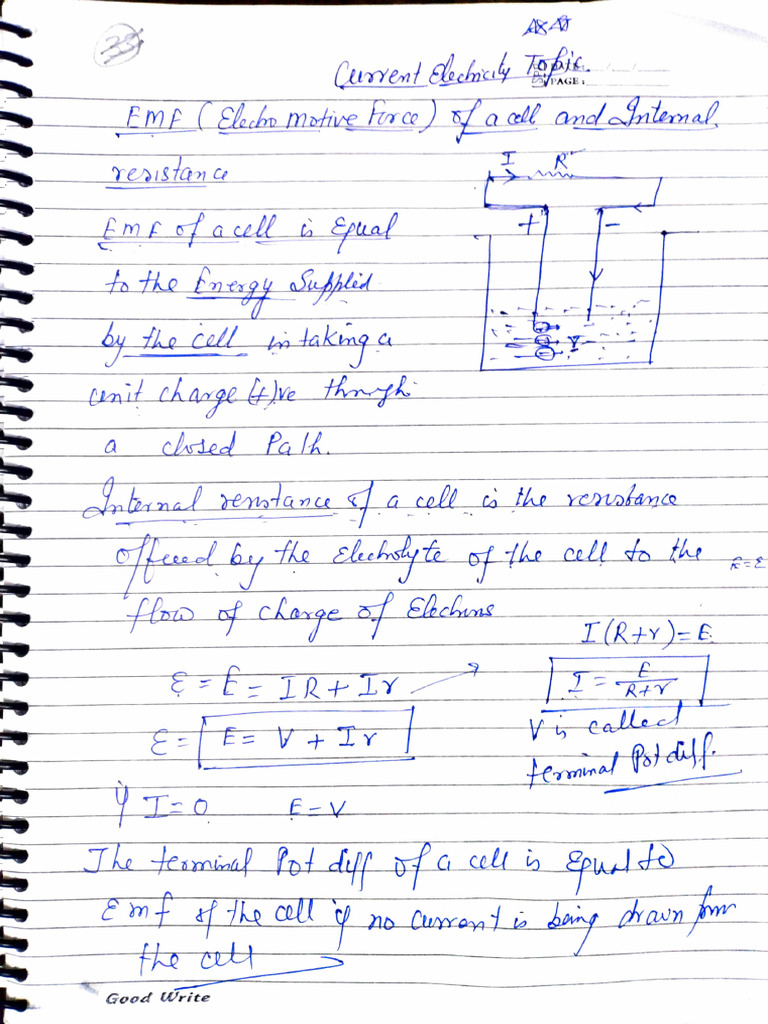 Current Electricity Topic.
PAGE:
EMF (Electro motive Force) of a cell and Internal
resistance
I R
+ -
EMF of a cell is Equal
to the Energy Supplied
by the cell in taking a
unit charge (+)ve through
a closed Path.
r
Internal resistance of a cell is the resistance
offered by the Electrolyte of the cell to the
R=E
flow of charge of Electrons
I(R+r) = E
ε = E = IR + Ir
I = E/R+r
ε = E = V + Ir
V is called
terminal Pot diff.
if I=0 E=V
The terminal Pot diff of a cell is Equal to
Emf of the cell if no current is being drawn from
the cell
Good Write